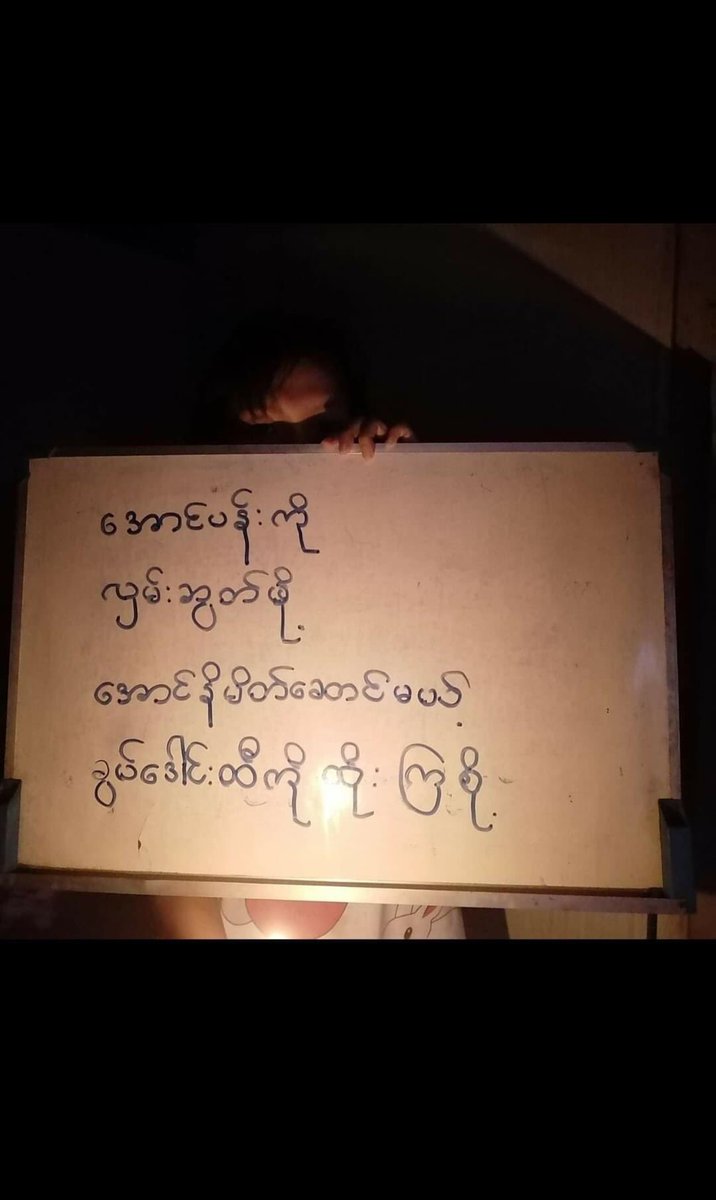 အောင်ပန်းကို
လှမ်းဆွတ်ဖို့
အောင်နိမိတ်ဆောင်မယ့်
ခွပ်ဒေါင်းထီကို ထိုး ကြစို့